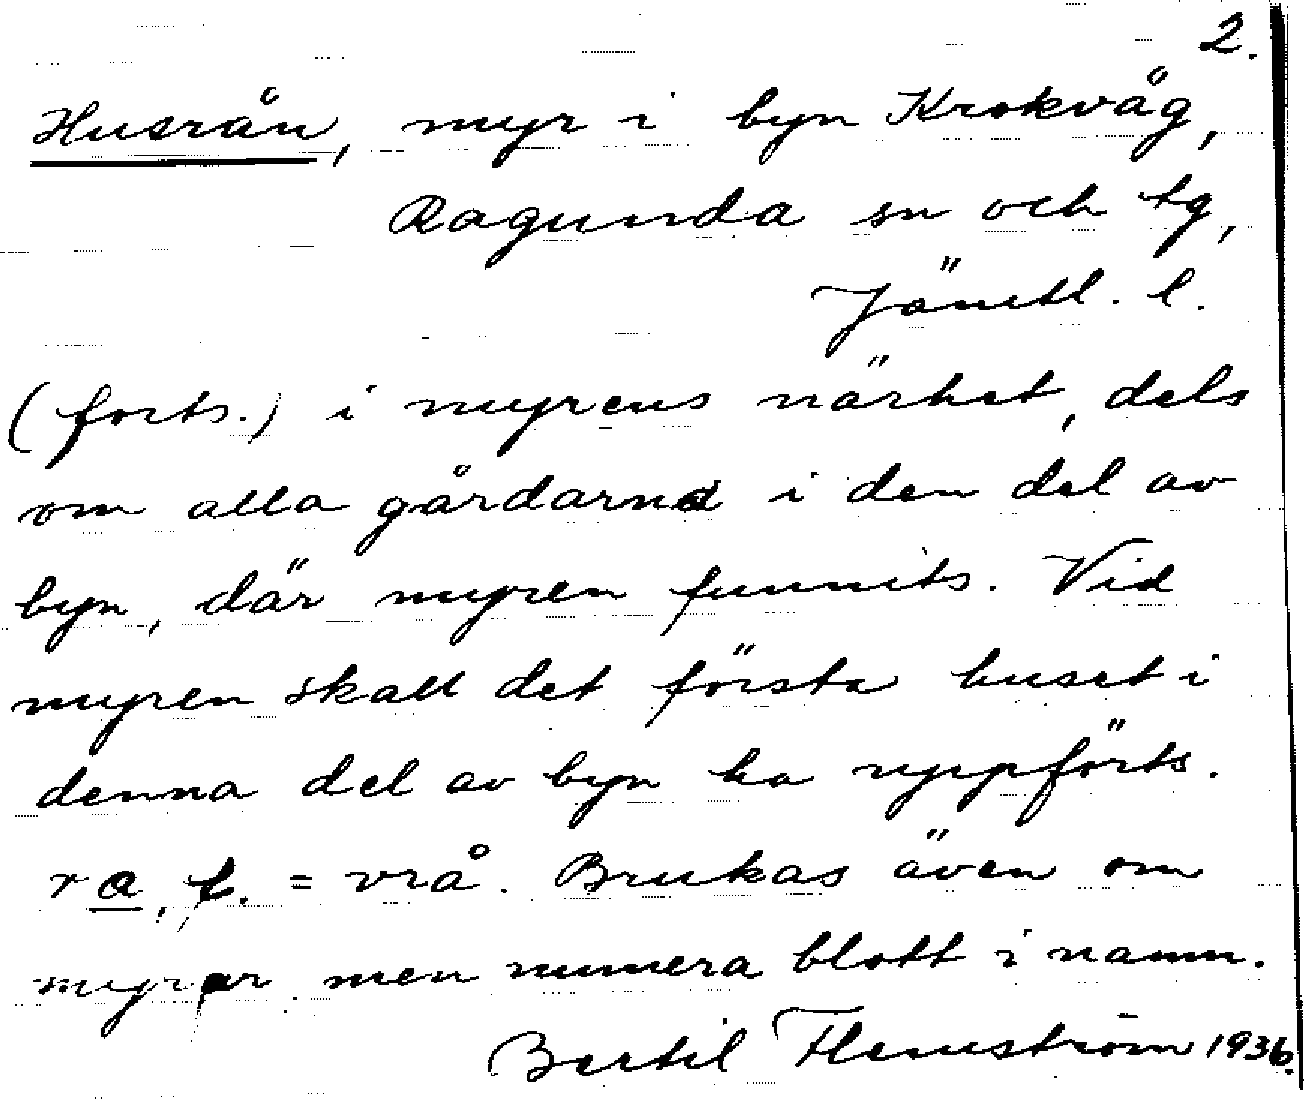 2.
Husrån, myr i byn Krokvåg,
Ragunda sn och tg,
Jämtl. l.
(forts.) i myrens närhet, dels
om alla gårdarna i den del av
byn, där myren funnits. Vid
myren skall det första huset i
denna del av byn ha uppförts.
ra, f. = vrå. Brukas även om
myrar men numera blott i namn.
Bertil Flemström 1936.